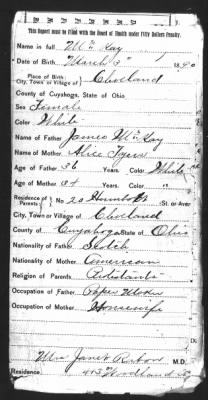 This Report must be filed with the Board of Health under Fifty Dollars Penalty.
Name in full Mc Kay
Date of Birth March 3" 1890
Place of Birth
City, Town or Village of Cleveland
County of Cuyahoga, State of Ohio
Sex Female
Color White
Name of Father James McKay
Name of Mother Alice
Age of Father 36 Years. Color White
Age of Mother Years. Color "
Residence of Parents No 20 Humbolt St. or Aver
City, Town or Village of Cleveland
County of Cuyahoga State of Ohio
Nationality of Father Scotch
Nationality of Mother American
Religion of Parents Protistants
Occupation of Father Paper
Occupation of Mother Housewife
Mrs Janet M.D.
Residence, Woodland